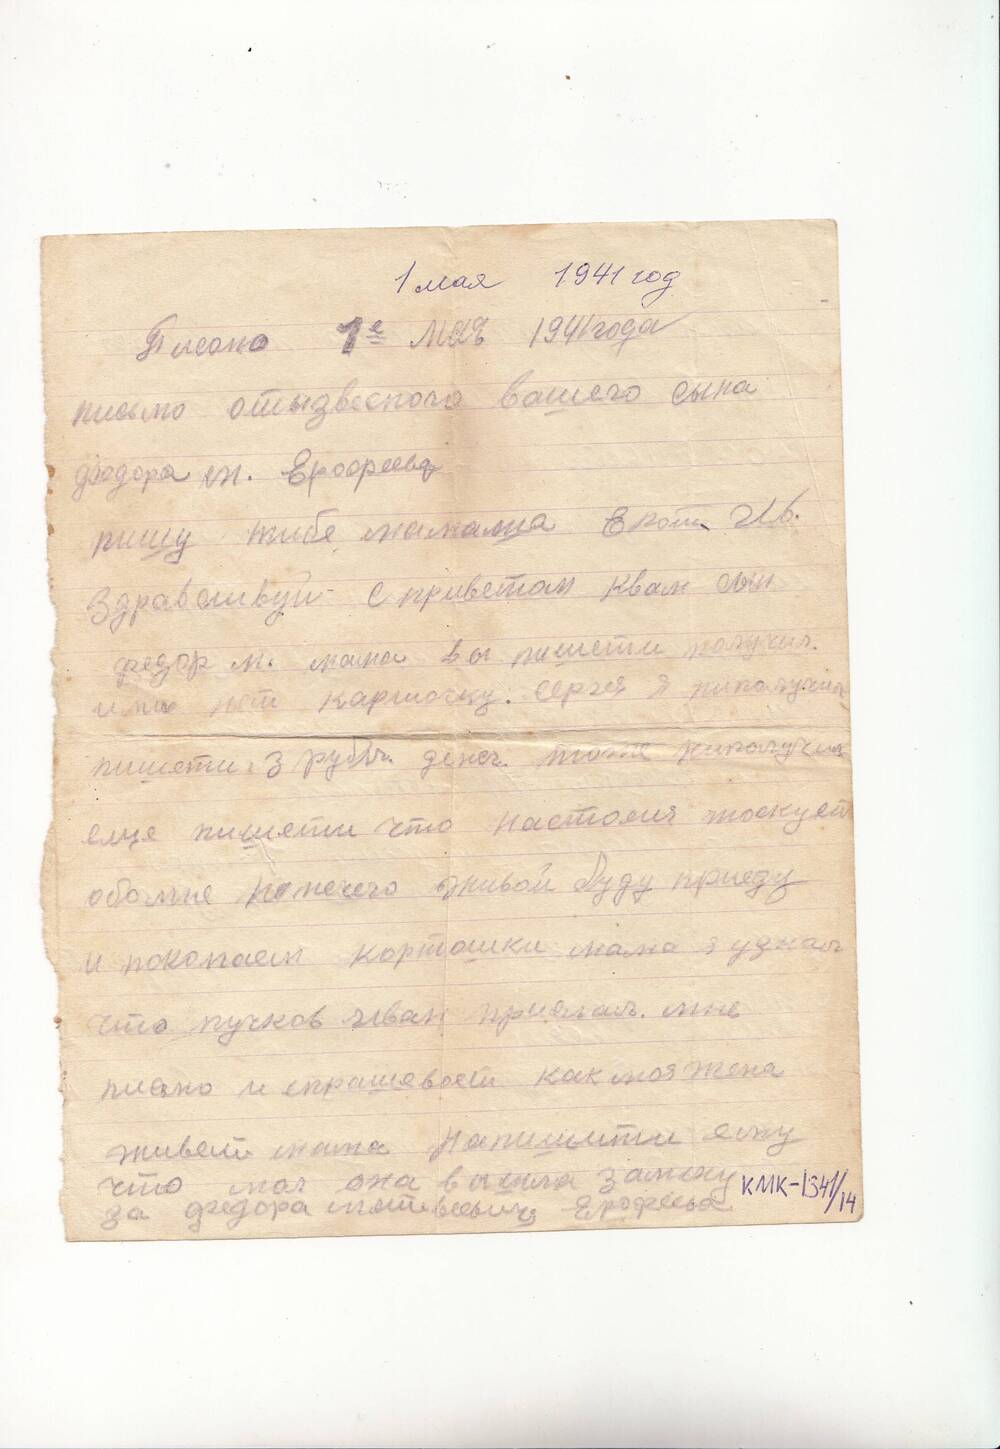 1 мая 1941 год
Писано 1е мая 1941 года
письмо отызвесного вашего сына
Федора м. Ерофеева
пишу тибе мамаша Екат. Ив.
Здравствуй с приветом квам сын
федор м. мама вы пишети получил.
или нет карточку. Сергея я ниполучил
пишети 3 рубл. денег. тоже ниполучил
еще пишети что Настасия тоскует
обомне ничего живой буду приеду
и покопаем картошки мама я узнал
что пучков иван прислал. мне
писмо и спрашевает как моя жена
живет мама напишити ему
что мол она вышла замеж
за федора матвеевича Ерофеева
КМК-1341/14